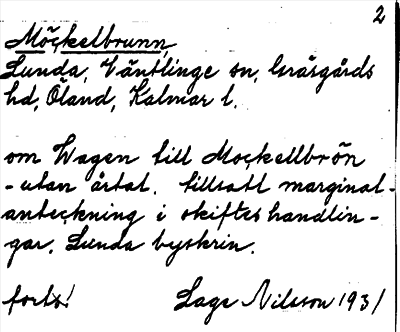 2
Möckelbrunn,
Lunda, Ventlinge sn, Gräsgårds
hd, Öland, Kalmar l.
om Wagen till Mockellbrön
- utan årtal. tillsatt marginal-
anteckning i skifteshandlin-
gar. Lunda byskrin.
forts! Lage Nilsson 1931